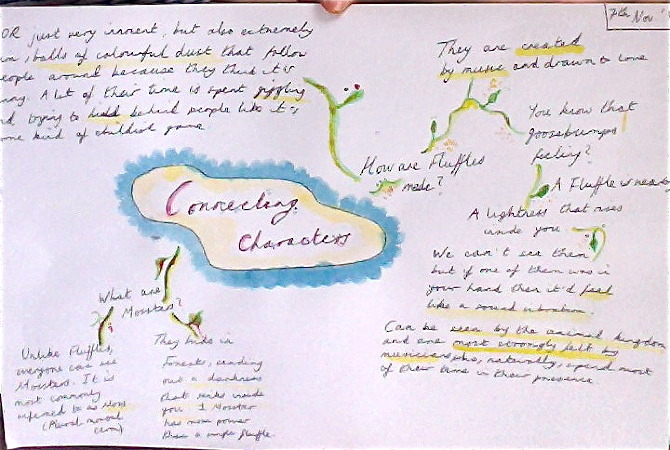 7th Nov
OR just very innocent, but also extremely
balls of colourful dust that follow
people around because they think it is
A lot of their time is spent giggling
trying to hide behind people like it's
some kind of childish game
They are created
by music and drawn to love
You know that
goosebumps
feeling?
A Fluffle is near
A lightness that rises
inside you
How are Fluffles
made?
We can't see them
but if one of them was in
your hand then it'd feel
like a sound vibration.
Can be seen by the animal kingdom
and are most strongly felt by
musicians who, naturally, spend most
of their time in their presence
Connecting
Characters
What are
Morsters?
Unlike Fluffles,
everyone can see
Morsters. It is
most commonly
referred to as
They hide in
Forests, sending
out a darkness
that sinks inside
you 1 Morster
has more power
than a single fluffle.